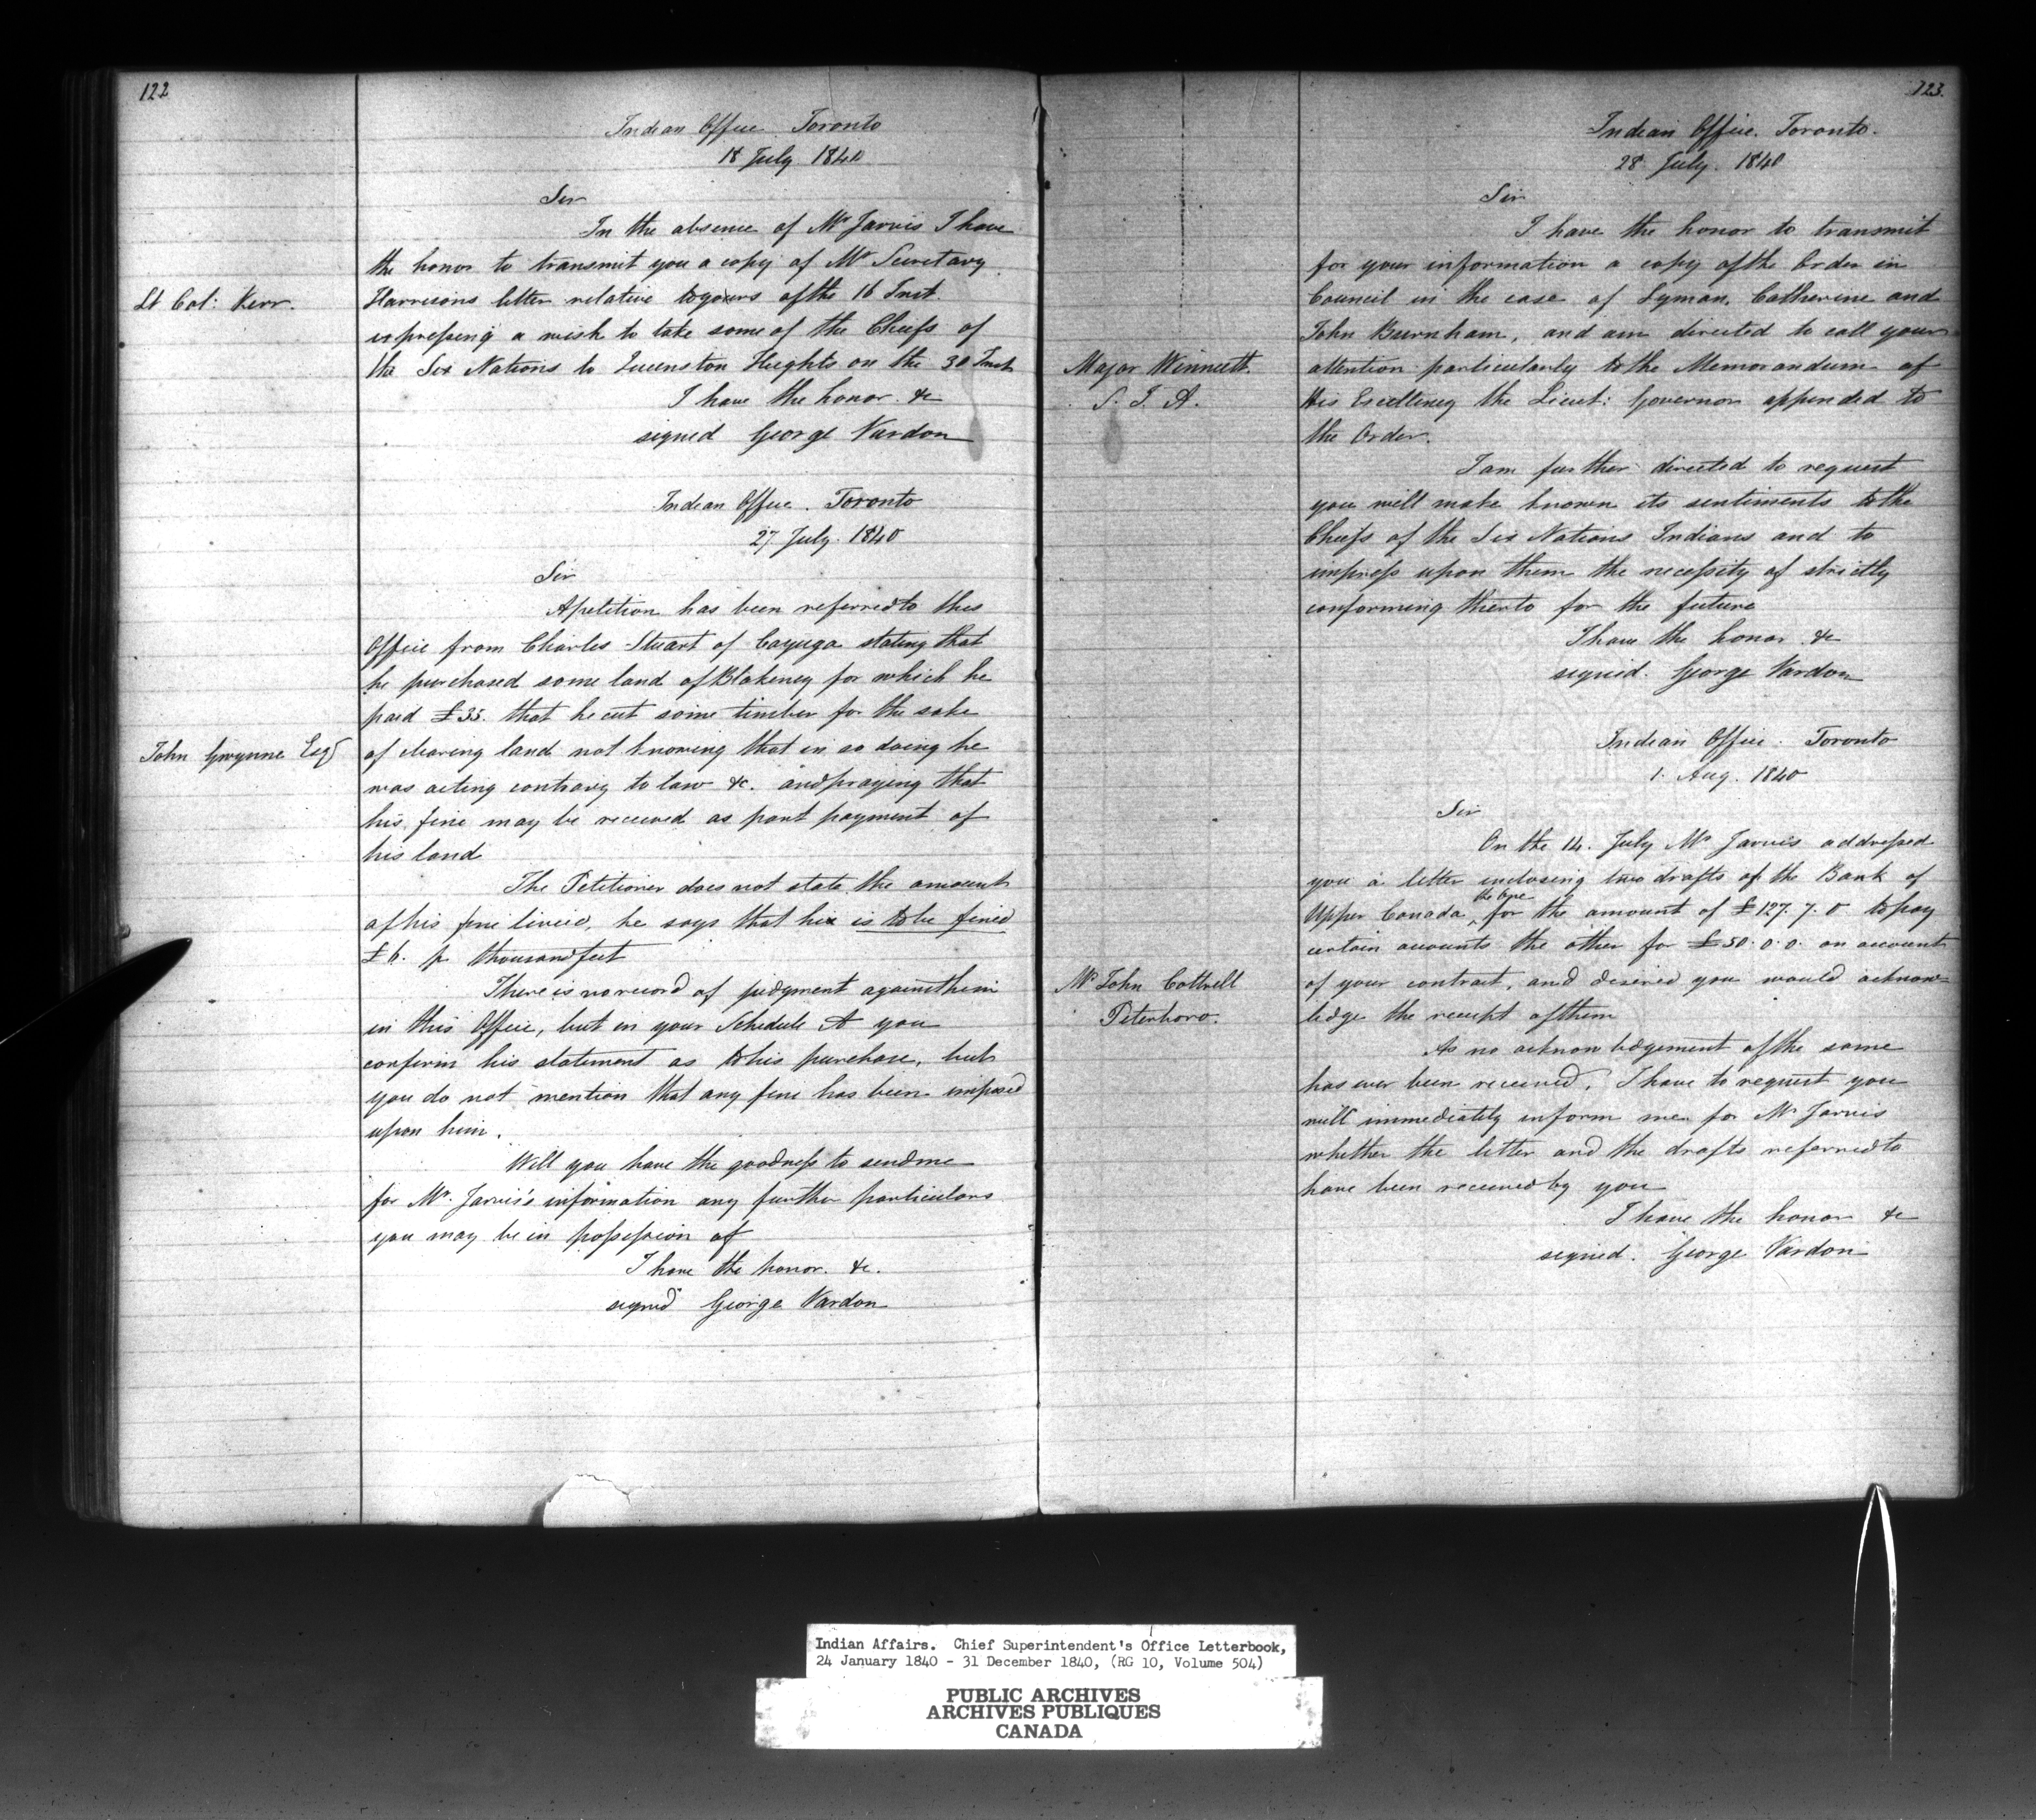 122
Indian Office Toronto
18 July 1840
Sir
In the absence of Mr Jarvis I have
the honor to transmit you a copy of Mr Secretary
Lt Col: Kerr.
Harrisons letter relative to yours of the 16 Inst.
expressing a wish to take some of the Chiefs of
the Six Nations to Queenston Heights on the 30 Inst
I have the honor &c
signed George Vardon
Indian Office. Toronto
27 July. 1840
Sir
A petition has been referred to this
Office from Charles Stuart of Cayuga stating that
he purchased some land of Blakeney for which he
paid £35. that he cut some timber for the sake
John Gwynne Esq
of clearing land not knowing that in so doing he
was acting contrary to law &c. and praying that
his fine may be received as part payment of
his land
The Petitioner does not state the amount
of his fine he says that he is to be fined
£6. p thousand feet
There is no record of judgment against him
in this Office, but in your Schedule A you
confirm his statement as to his purchase, but
you do not mention that any fine has been imposed
upon him.
Will you have the goodness to send me
for Mr. Jarvis's information any further particulars
you may be in possession of
I have the honor. &c.
signed George Vardon
123.
Indian Office. Toronto.
28 July. 1840
Sir
I have the honor to transmit
for your information a copy of the Order in
Council in the case of Lyman, Catherine and
John Burnham, and am directed to call your
Major Winniett
S. I. A.
attention particularly to the Memorandum of
His Excellency the Lieut: Governor appended to
the Order.
I am further directed to request
you will make known its sentiments to the
Chiefs of the Six Nations Indians and to
impress upon them the necessity of strictly
conforming thereto for the future
I have the honor &c
signed. George Vardon
Indian Office. Toronto
1. Aug. 1840
Sir
On the 14. July Mr Jarvis addressed
you a letter inclosing two drafts of the Bank of
Upper Canada, the one for the amount of £127.7.0 to pay
certain accounts the other for £50.0.0. on account
Mr John Cottrell
Peterboro.
of your contract, and desired you would acknow-
ledge the receipt of them
As no acknowledgement of the same
has ever been received, I have to request you
will immediately inform me for Mr Jarvis
whether the letter and the drafts referred to
have been received by you
I have the honor &c
signed. George Vardon
Indian Affairs. Chief Superintendent's Office Letterbook,
24 January 1840 - 31 December 1840, (RG 10, Volume 504)
PUBLIC ARCHIVES
ARCHIVES PUBLIQUES
CANADA